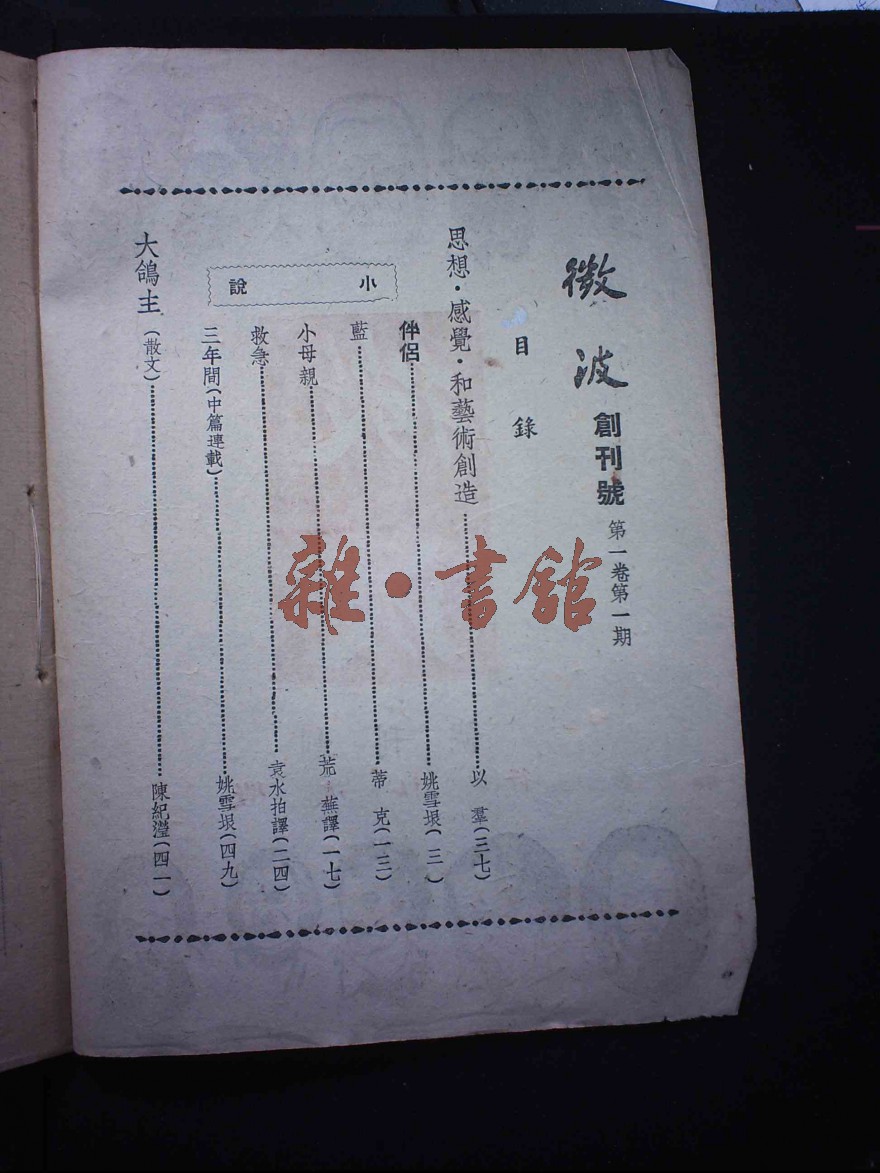 微波 創刊號 第一卷第一期
目錄
思想·感覺·和藝術創造……以羣(三七)
小說
伴侶……姚雪垠(三)
藍……蒂克(一三)
小母親……荒蕪譯(一七)
救急……袁水拍譯(二四)
三年間(中篇連載)……姚雪垠(四九)
大鴿主(散文)……陳紀瀅(四一)
雜·書館